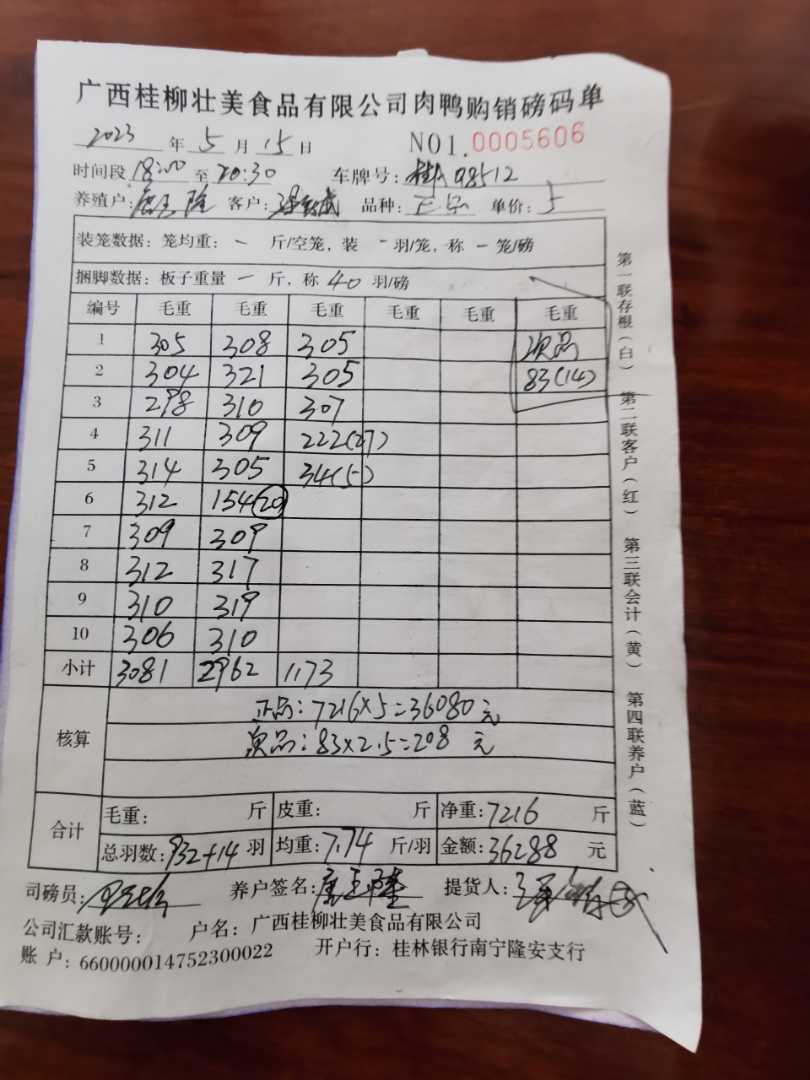 广西桂柳壮美食品有限公司肉鸭购销磅码单
2023 年 5 月 15 日 NO1.0005606
时间段 18:00 至 20:30 车牌号: 98512
养殖户: 客户: 品种: 正品 单价: 5
装笼数据: 笼均重: - 斤/空笼, 装 - 羽/笼, 称 - 笼/磅
捆脚数据: 板子重量 - 斤, 称 40 羽/磅
编号 毛重 毛重 毛重 毛重 毛重 毛重
1 305 308 305 次品
2 304 321 305 83(14)
3 298 310 307
4 311 309 222(27)
5 314 305 34(5)
6 312 154(20)
7 309 309
8 312 317
9 310 319
10 306 310
小计 3081 2962 1173
核算
正品: 7216×5=36080 元
次品: 83×2.5=208 元
合计
毛重: 斤 皮重: 斤 净重: 7216 斤
总羽数: 932+14 羽 均重: 7.74 斤/羽 金额: 36288 元
司磅员: 养户签名: 提货人:
公司汇款账号: 户名: 广西桂柳壮美食品有限公司
账 户: 660000014752300022 开户行: 桂林银行南宁隆安支行
第一联存根(白) 第二联客户(红) 第三联会计(黄) 第四联养户(蓝)